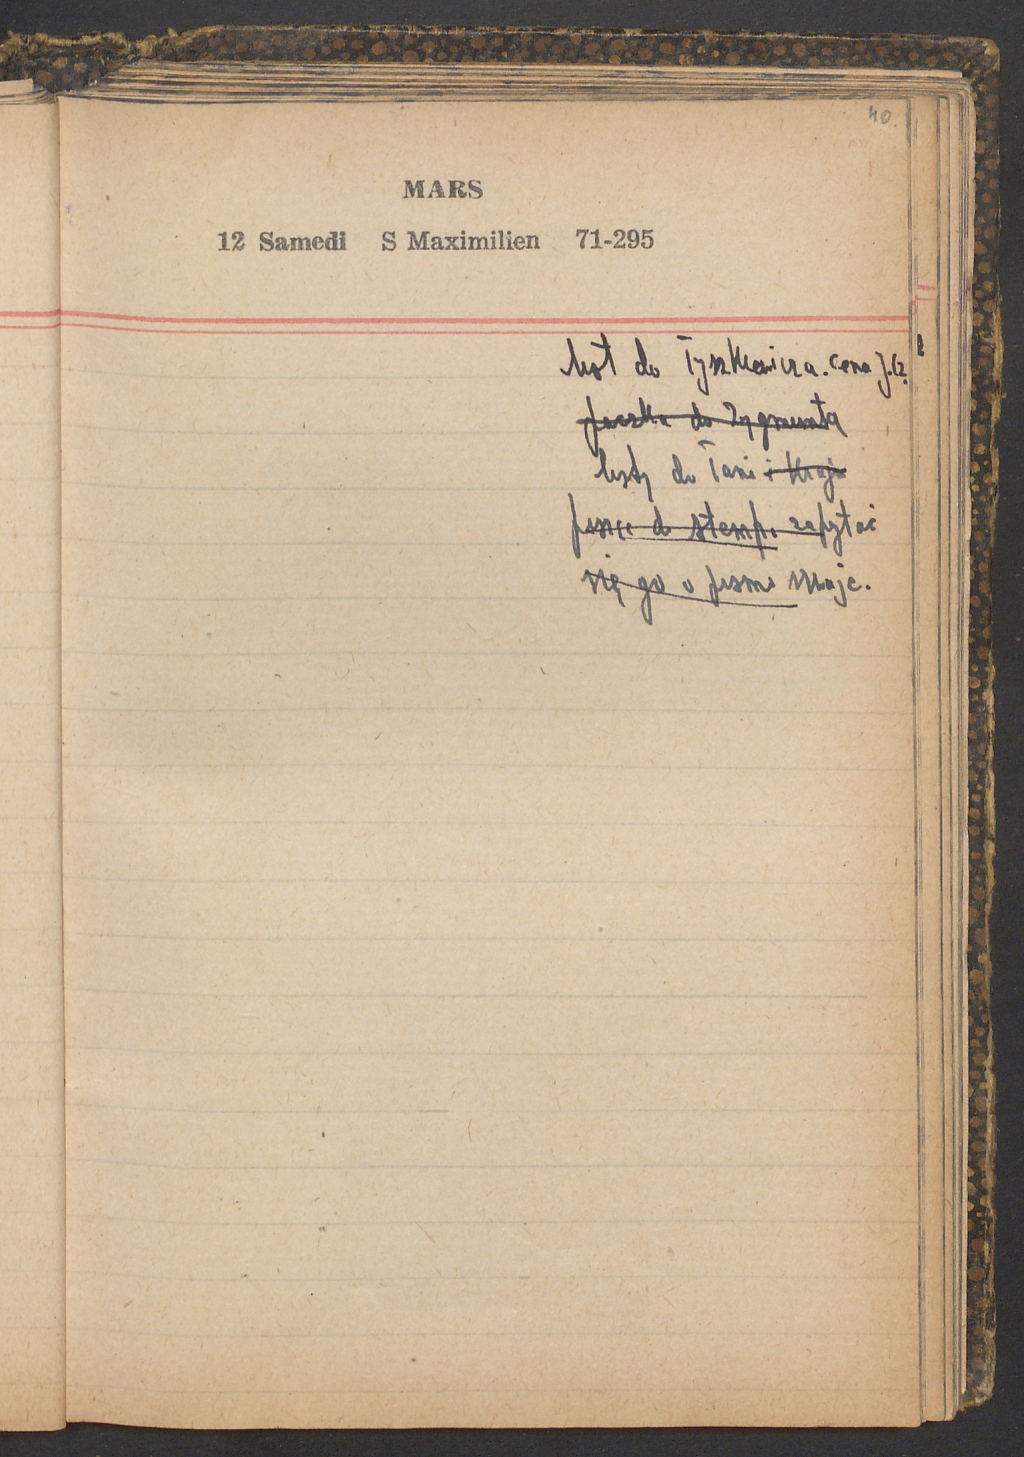 40.
MARS
12 Samedi S Maximilien 71-295
list do Tyszkiewicza. cena
paczka do Zygmunta
listy do Tani i Kraju
do stemp. zapytać
się go o pismo